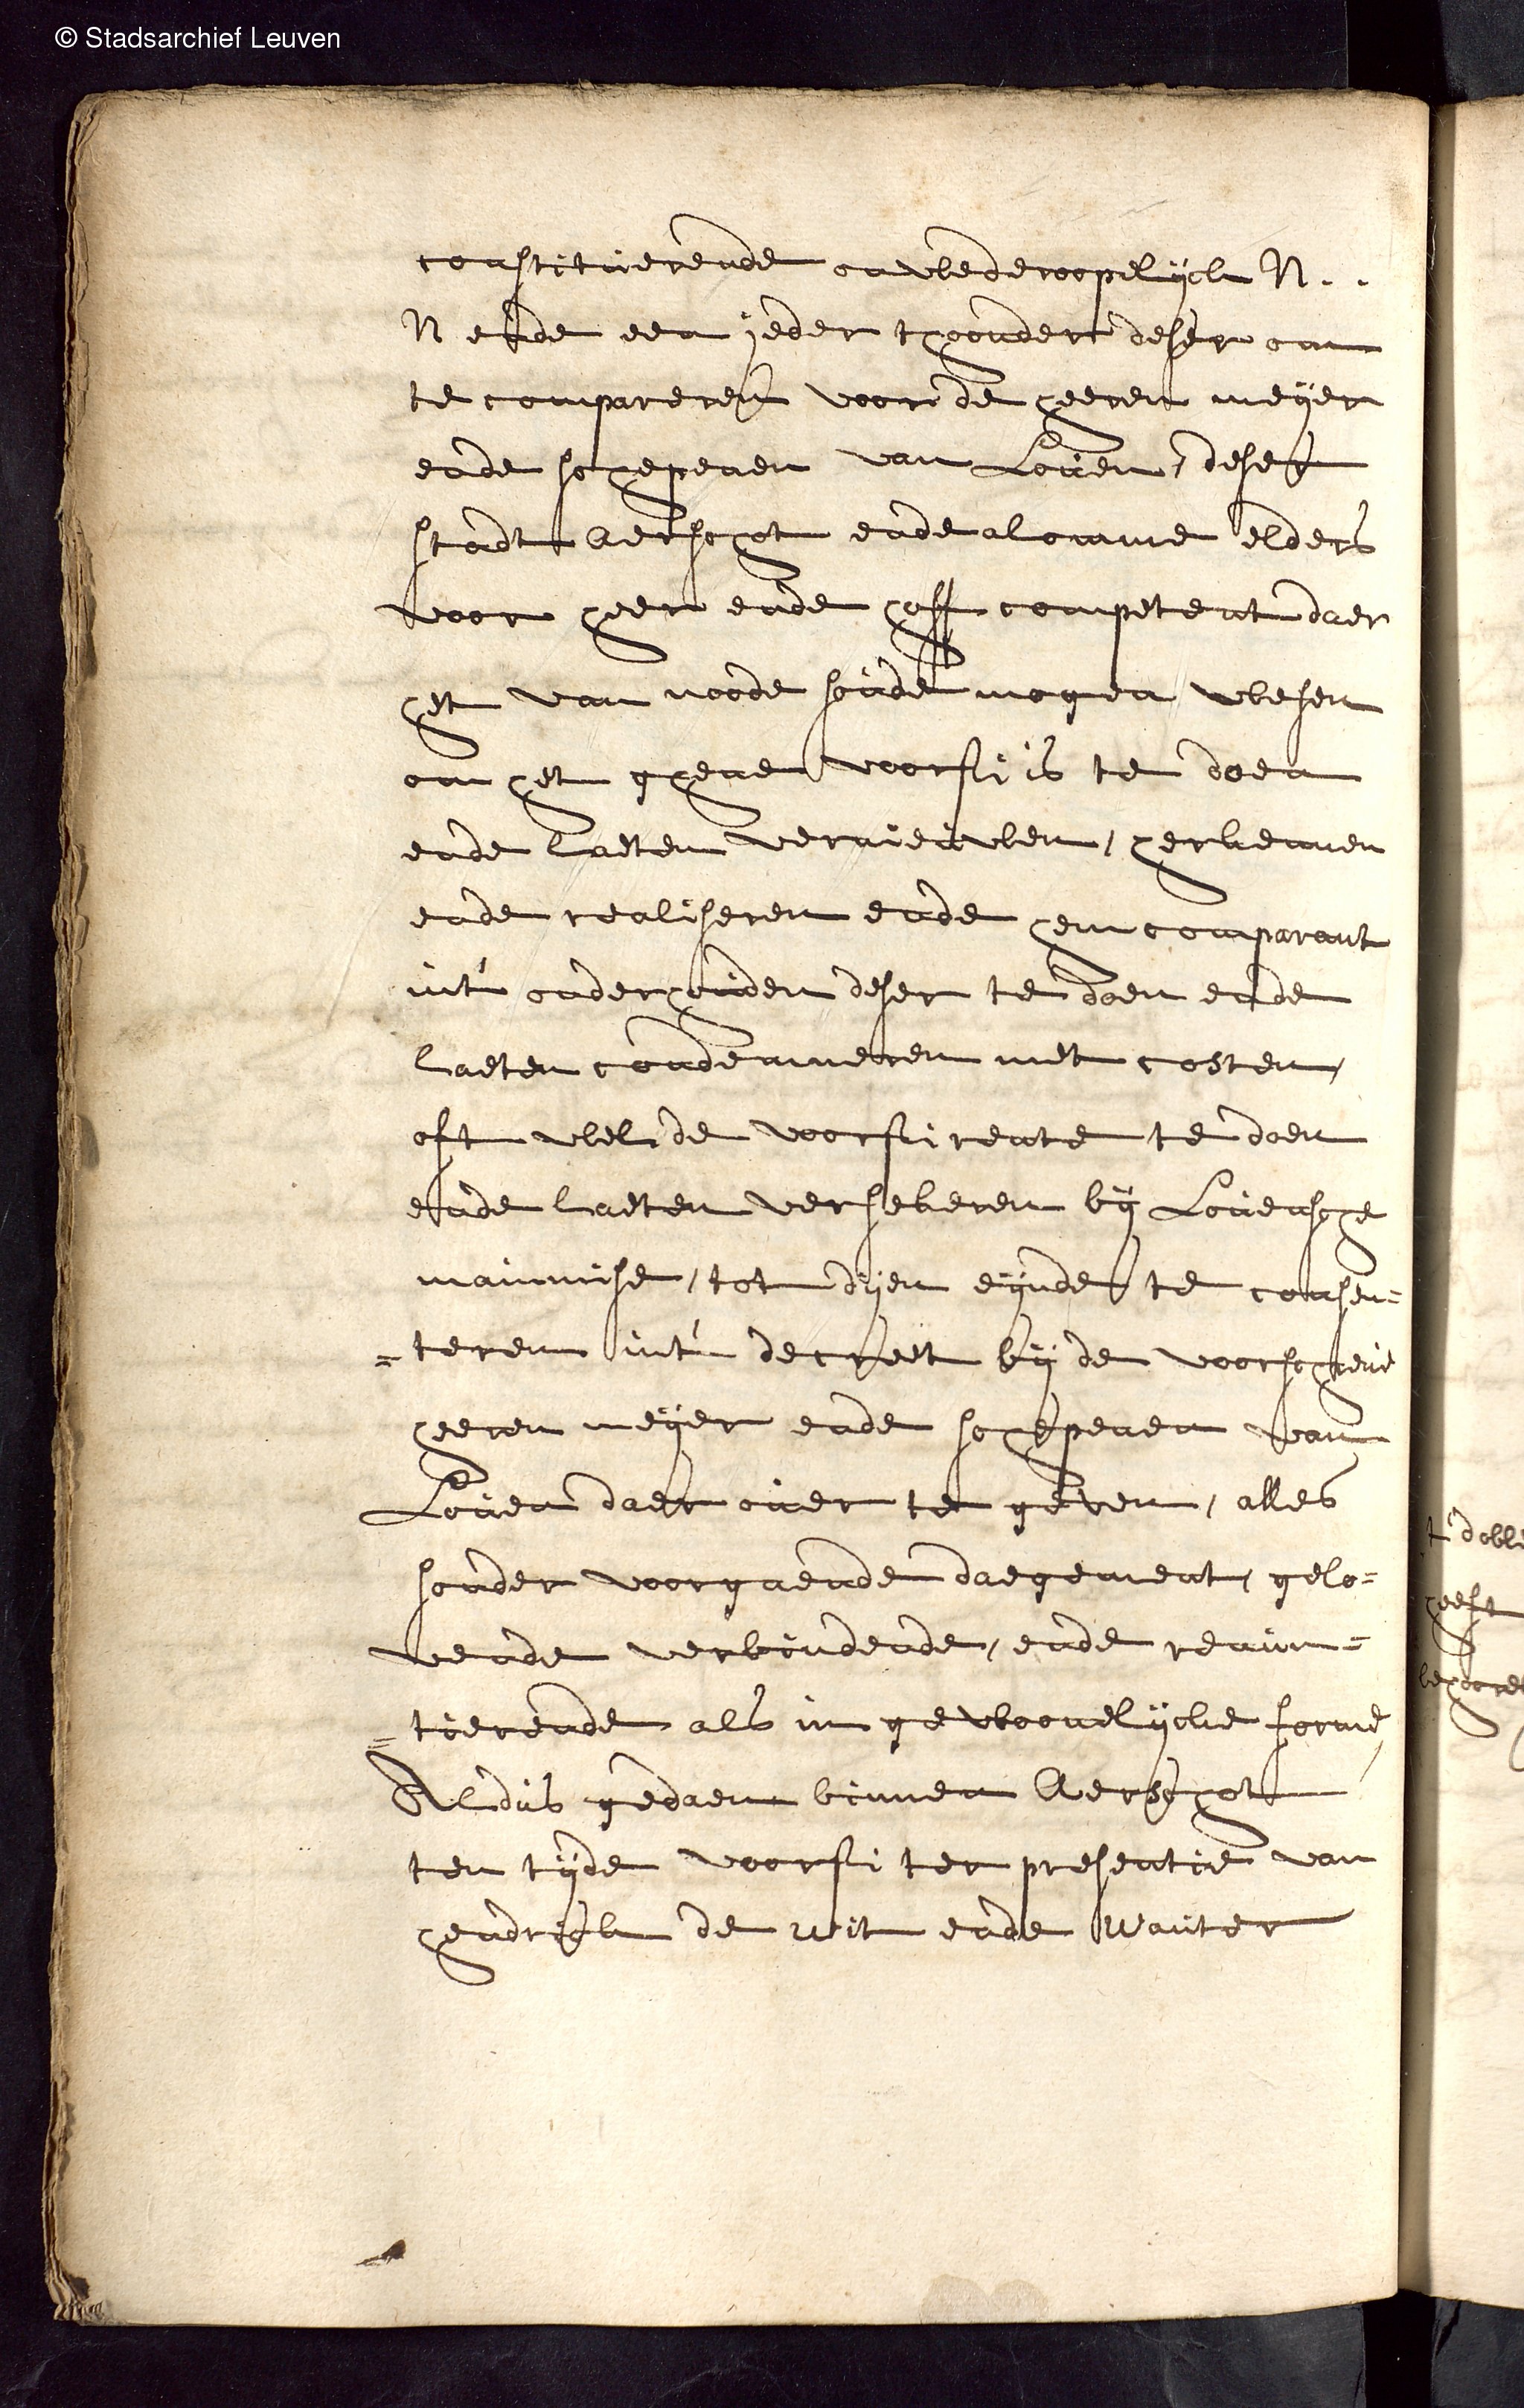 © Stadsarchief Leuven
constituerende onwederoepelyck N..
N ende een ieder thoonder deser om
te compareren voor de heeren meyer
ende schepenen van Loven, deser
stadt Aerschot ende alomme elders
voor heer ende hoff competent daer
het van noode soude mogen wesen
om het ghene voorss is te doen
ende laeten vernieuwen, herkennen
ende realiseren ende hem comparant
int' onderhouden deser te doen ende
laeten condemneren met costen,
oft wel de voorss rente te doen
ende laeten versekeren by Lovensche
mainmise, tot dyen eynde te consen=
=teren int' decreet by de voorscheve
heeren meyer ende schepenen van
Loven daer over te geven, alles
sonder voorgaende daegement, gelo=
vende verbindende, ende renun=
=tierende als in gewoonelycke forme,
Aldus gedaen binnen Aerschot
ten tyde voorss ter presentie van
hendrick de wit ende Wauter
heeft